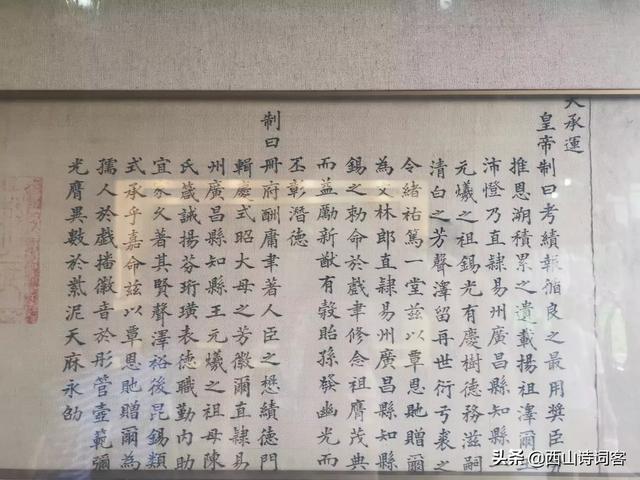 天承運
皇帝制曰考績報循良之最用獎臣
推恩溯積累之遺載揚祖澤爾王
沛憕乃直隸易州廣昌縣知縣王
元曦之祖錫光有慶樹德務滋嗣
清白之芳聲澤留再世衍弓裘之
令緒祐篤一堂茲以覃恩貤贈爾
為文林郎直隸易州廣昌縣知縣
錫之勅命於戲聿修念祖膺茂典
而益勵新猷有穀貽孫發幽光而
丕彰潛德
制曰冊府酬庸聿著人臣之懋績德門
輯慶式昭大母之芳徽爾直隸易
州廣昌縣知縣王元曦之祖母陳
氏箴誡揚芬珩璜表德職勤內助
宜家久著其賢聲澤裕後昆錫類
式承乎嘉命茲以覃恩貤贈爾為
孺人於戲播徽音於彤管壼範彌
光膺異數於紫泥天庥永劭
头条 @西山诗词客